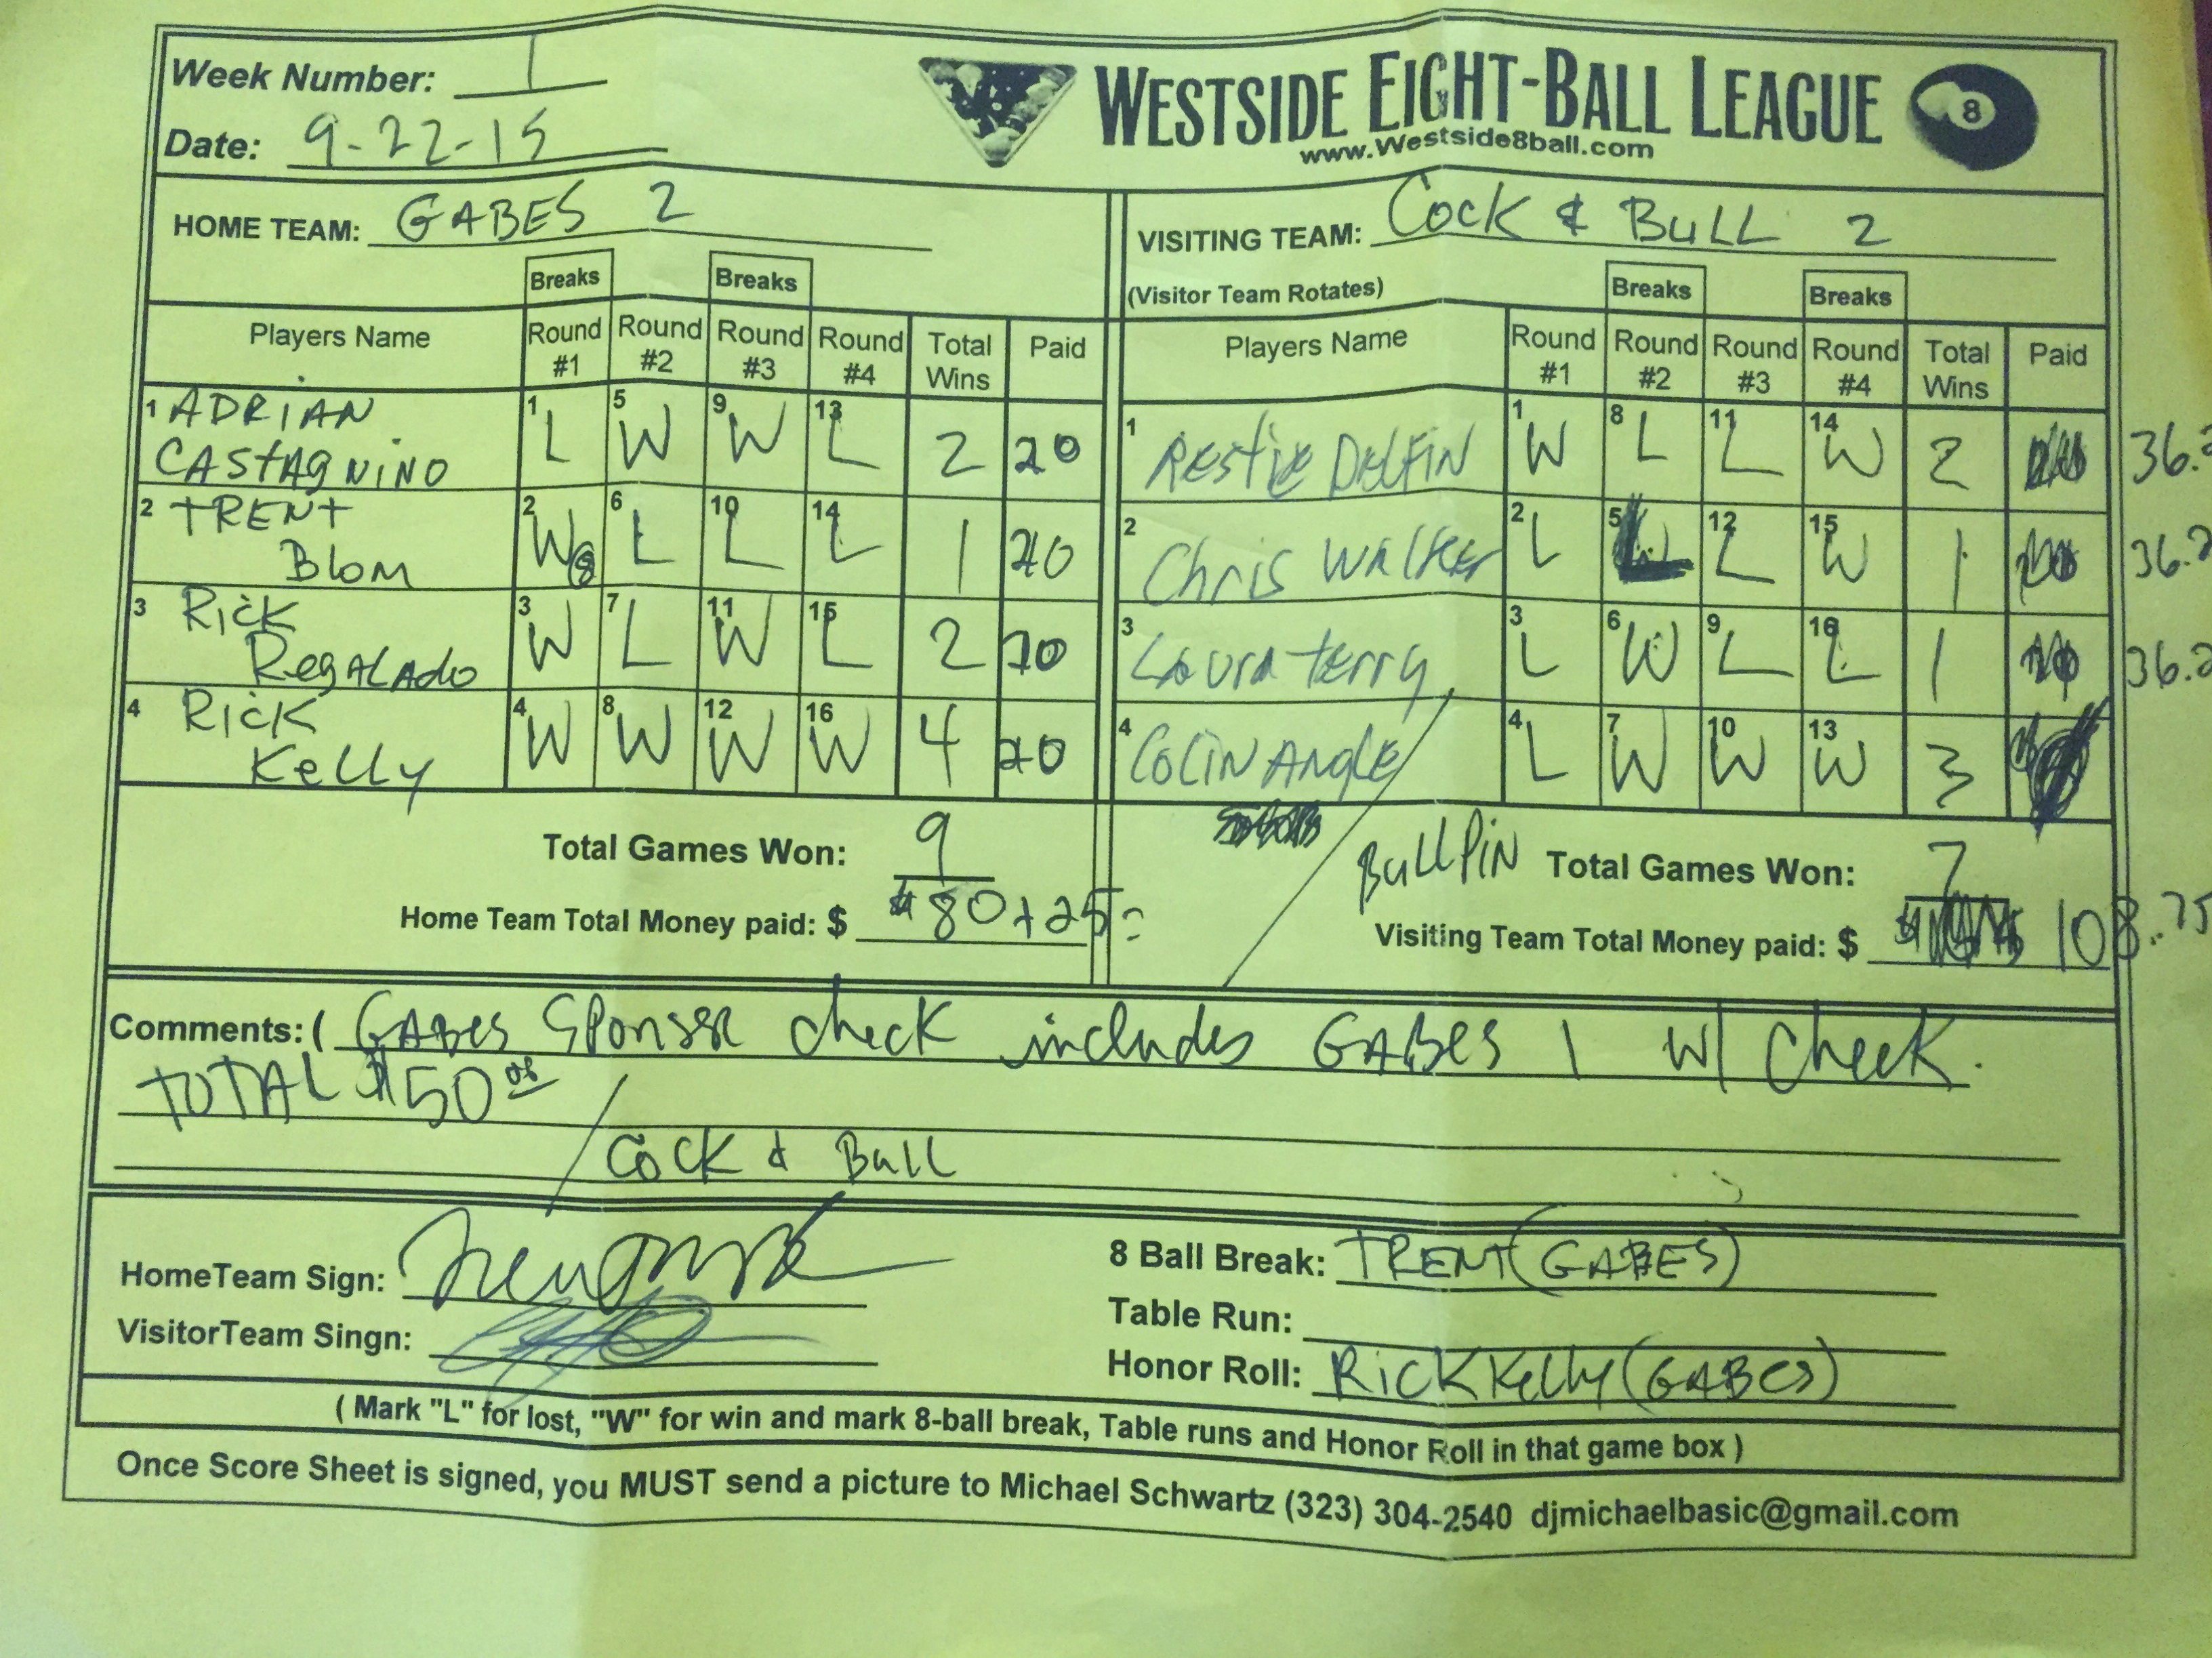 Week Number: 1
Date: 9-22-15
WESTSIDE EIGHT-BALL LEAGUE 8
www.Westside8ball.com
HOME TEAM: GABES 2
VISITING TEAM: COCK & BULL 2
Breaks Breaks
(Visitor Team Rotates) Breaks Breaks
Players Name Round #1 Round #2 Round #3 Round #4 Total Wins Paid
Players Name Round #1 Round #2 Round #3 Round #4 Total Wins Paid
1 ADRIAN CASTAGNINO 1 L 5 W 9 W 13 L 2 20
1 RESTIE DELFIN 1 W 8 L 11 L 14 W 2 36.
2 TRENT Blom 2 W 8 6 L 10 L 14 L 1 20
2 Chris Walker 2 L 5 L 12 L 15 W 1 36.
3 Rick RegALAdo 3 W 7 L 11 W 15 L 2 20
3 Laura terry 3 L 6 W 9 L 16 L 1 36.
4 Rick Kelly 4 W 8 W 12 W 16 W 4 20
4 COLIN ANGLE 4 L 7 W 10 W 13 W 3
Total Games Won: 9
BullPiN Total Games Won: 7
Home Team Total Money paid: $ $80+25=
Visiting Team Total Money paid: $ 108.75
Comments: ( GABES SPONSER check includes GABES 1 W/ Check.
TOTAL $50
COCK & Ball
HomeTeam Sign:
8 Ball Break: TRENT (GABES)
VisitorTeam Singn:
Table Run:
Honor Roll: Rick Kelly (GABES)
( Mark "L" for lost, "W" for win and mark 8-ball break, Table runs and Honor Roll in that game box )
Once Score Sheet is signed, you MUST send a picture to Michael Schwartz (323) 304-2540 djmichaelbasic@gmail.com